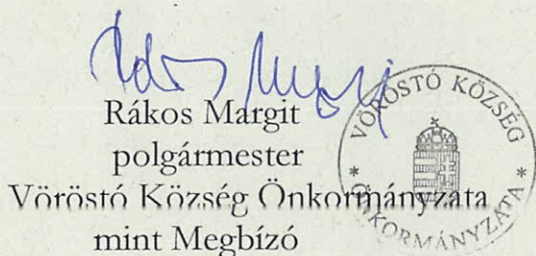 Rákos Margit
polgármester
Vöröstó Község Önkormányzata
mint Megbízó
VÖRÖSTÓ KÖZSÉG
* ÖNKORMÁNYZATA *